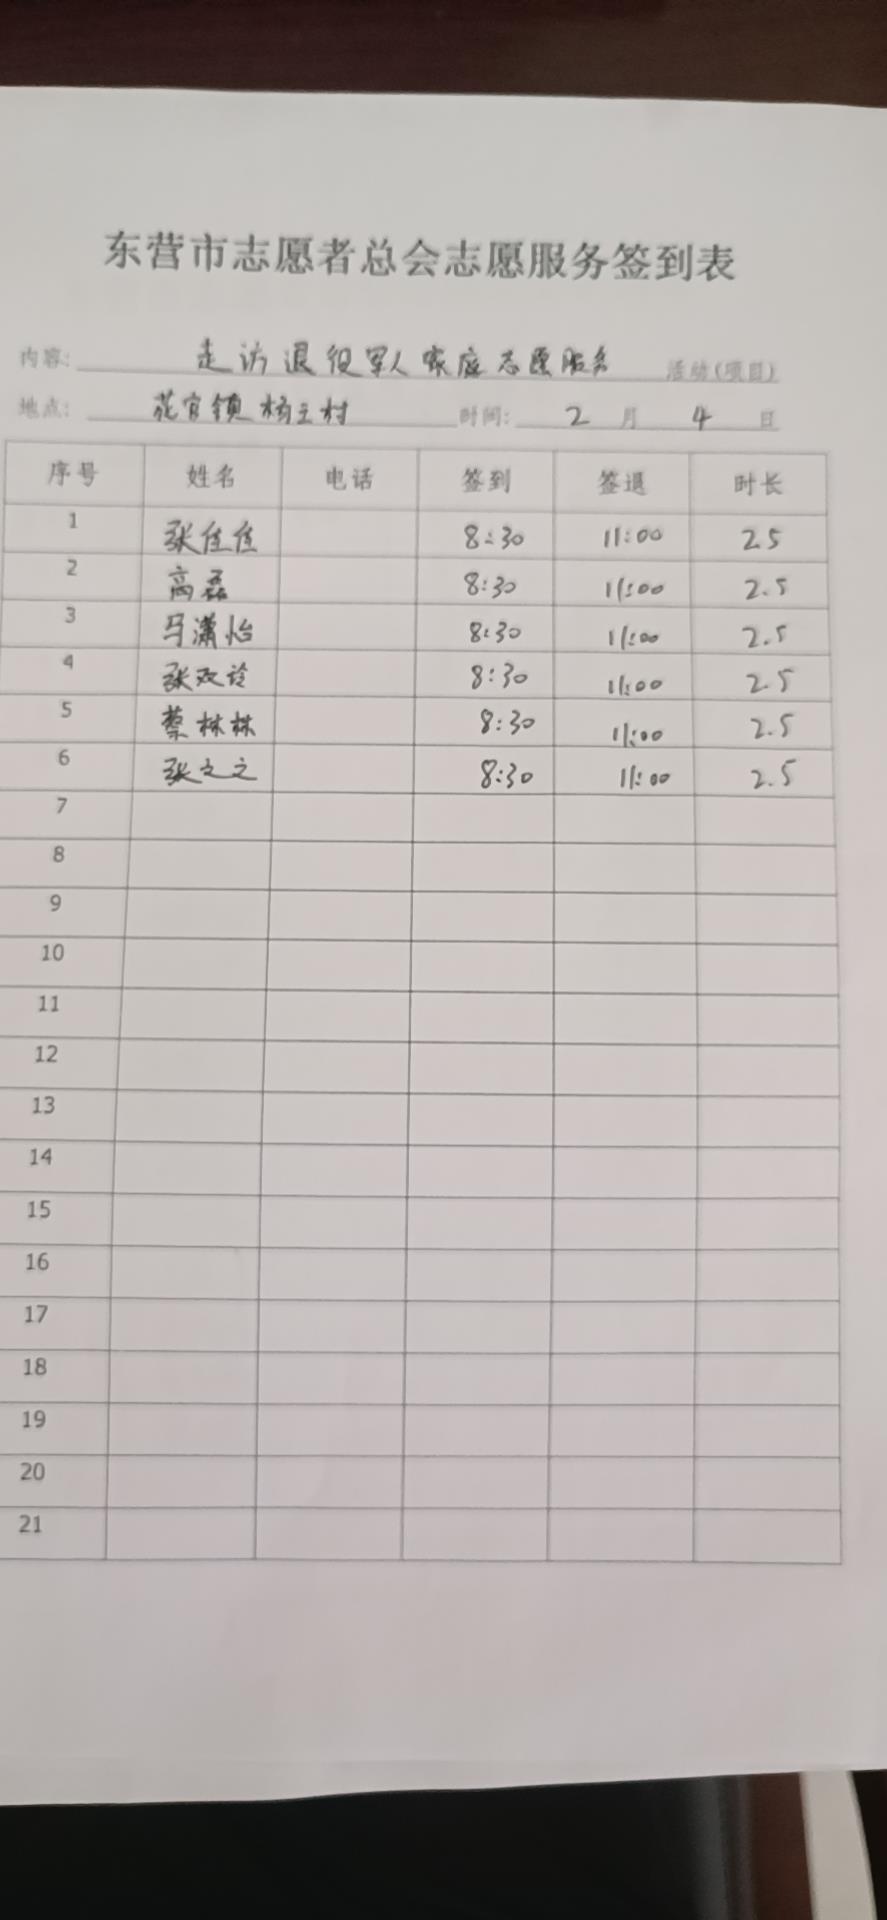 东营市志愿者总会志愿服务签到表
内容: 走访退役军人家庭志愿服务 活动(项目)
地点: 花官镇杨王村 时间: 2 月 4 日
序号 姓名 电话 签到 签退 时长
1 张佳佳 8:30 11:00 2.5
2 高磊 8:30 11:00 2.5
3 马潇怡 8:30 11:00 2.5
4 张双玲 8:30 11:00 2.5
5 蔡林林 8:30 11:00 2.5
6 张文文 8:30 11:00 2.5
7
8
9
10
11
12
13
14
15
16
17
18
19
20
21